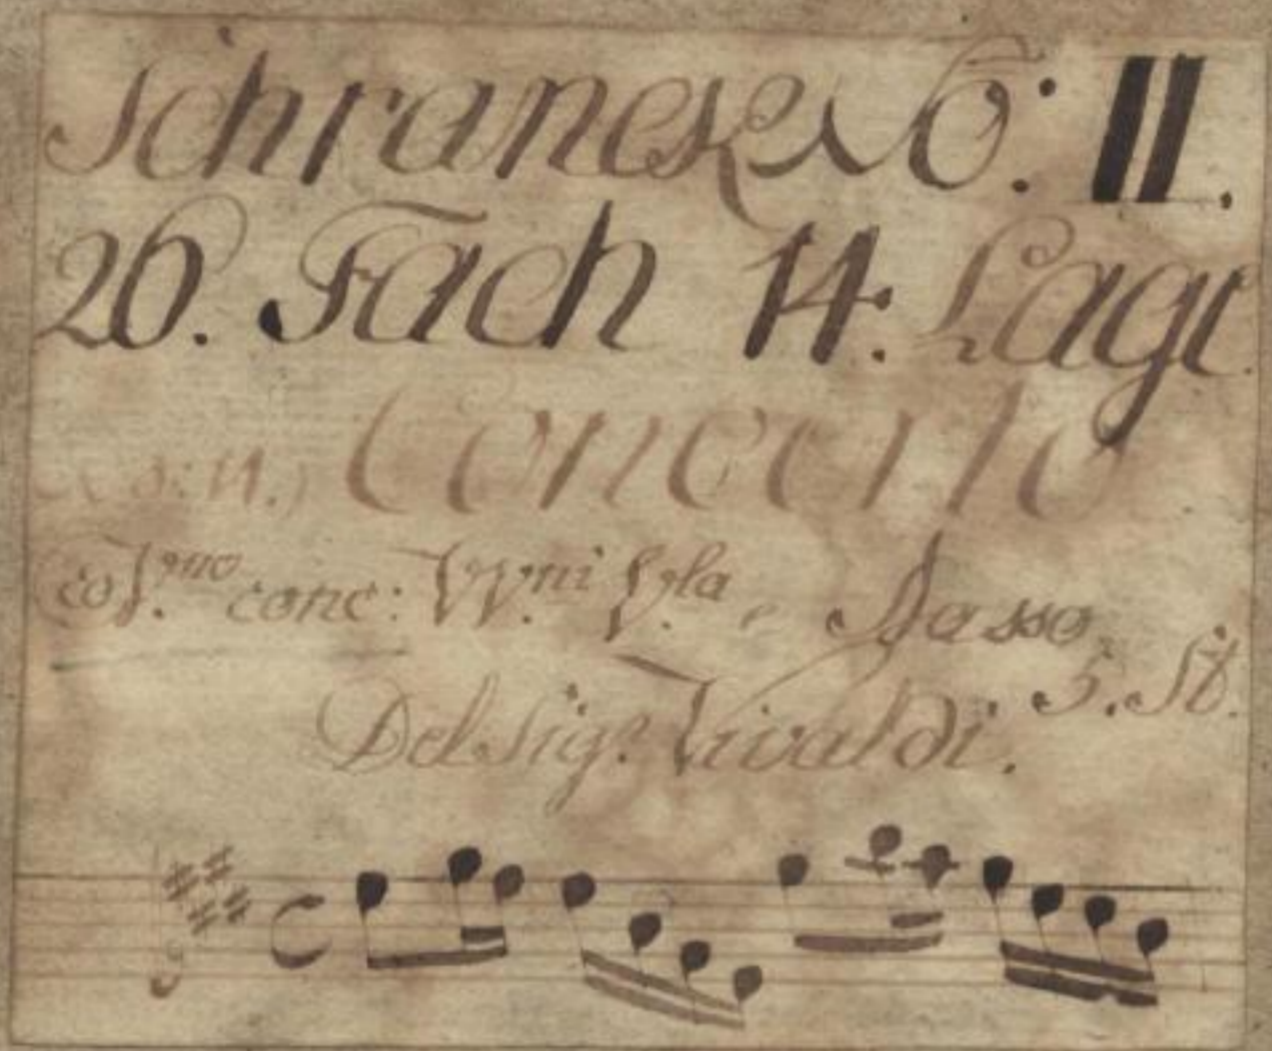 Schranck No: II.
26. Fach 14. Lage
(No: 11.) Concerto
co V.no conc: VV.ni V.la e Basso
5. St.
Del Sig.r Vivaldi.